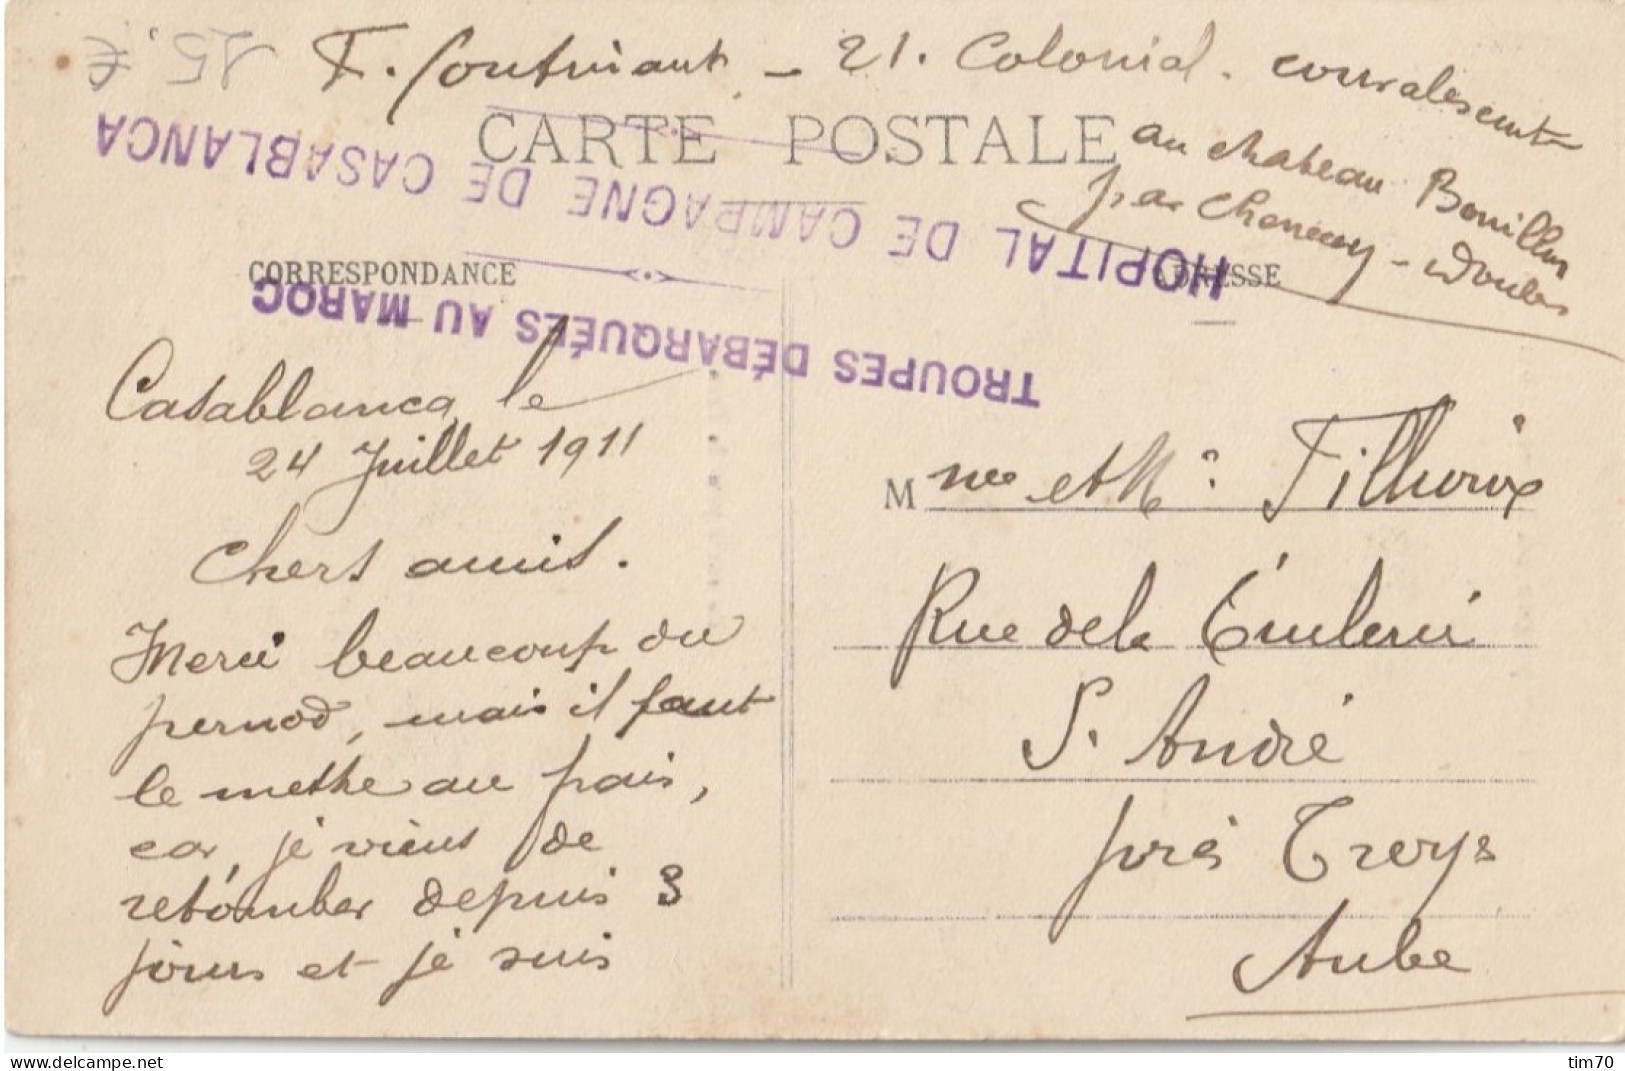 15. €
F. Contuiaut - 21. Colonial. convalescent
au chateau Bouillon
par Chenecey - Doubs
CARTE POSTALE
HOPITAL DE CAMPAGNE DE CASABLANCA
TROUPES DÉBARQUÉES AU MAROC
CORRESPONDANCE
ADRESSE
Casablanca, le
24 Juillet 1911
Chers amis.
Merci beaucoup du
pernod, mais il faut
le methe au frais,
car, je viens de
retomber depuis 3
jours et je suis
Mme et Mr
Rue de la Tuilerie
St André
près Troyes
Aube
delcampe.net
tim70